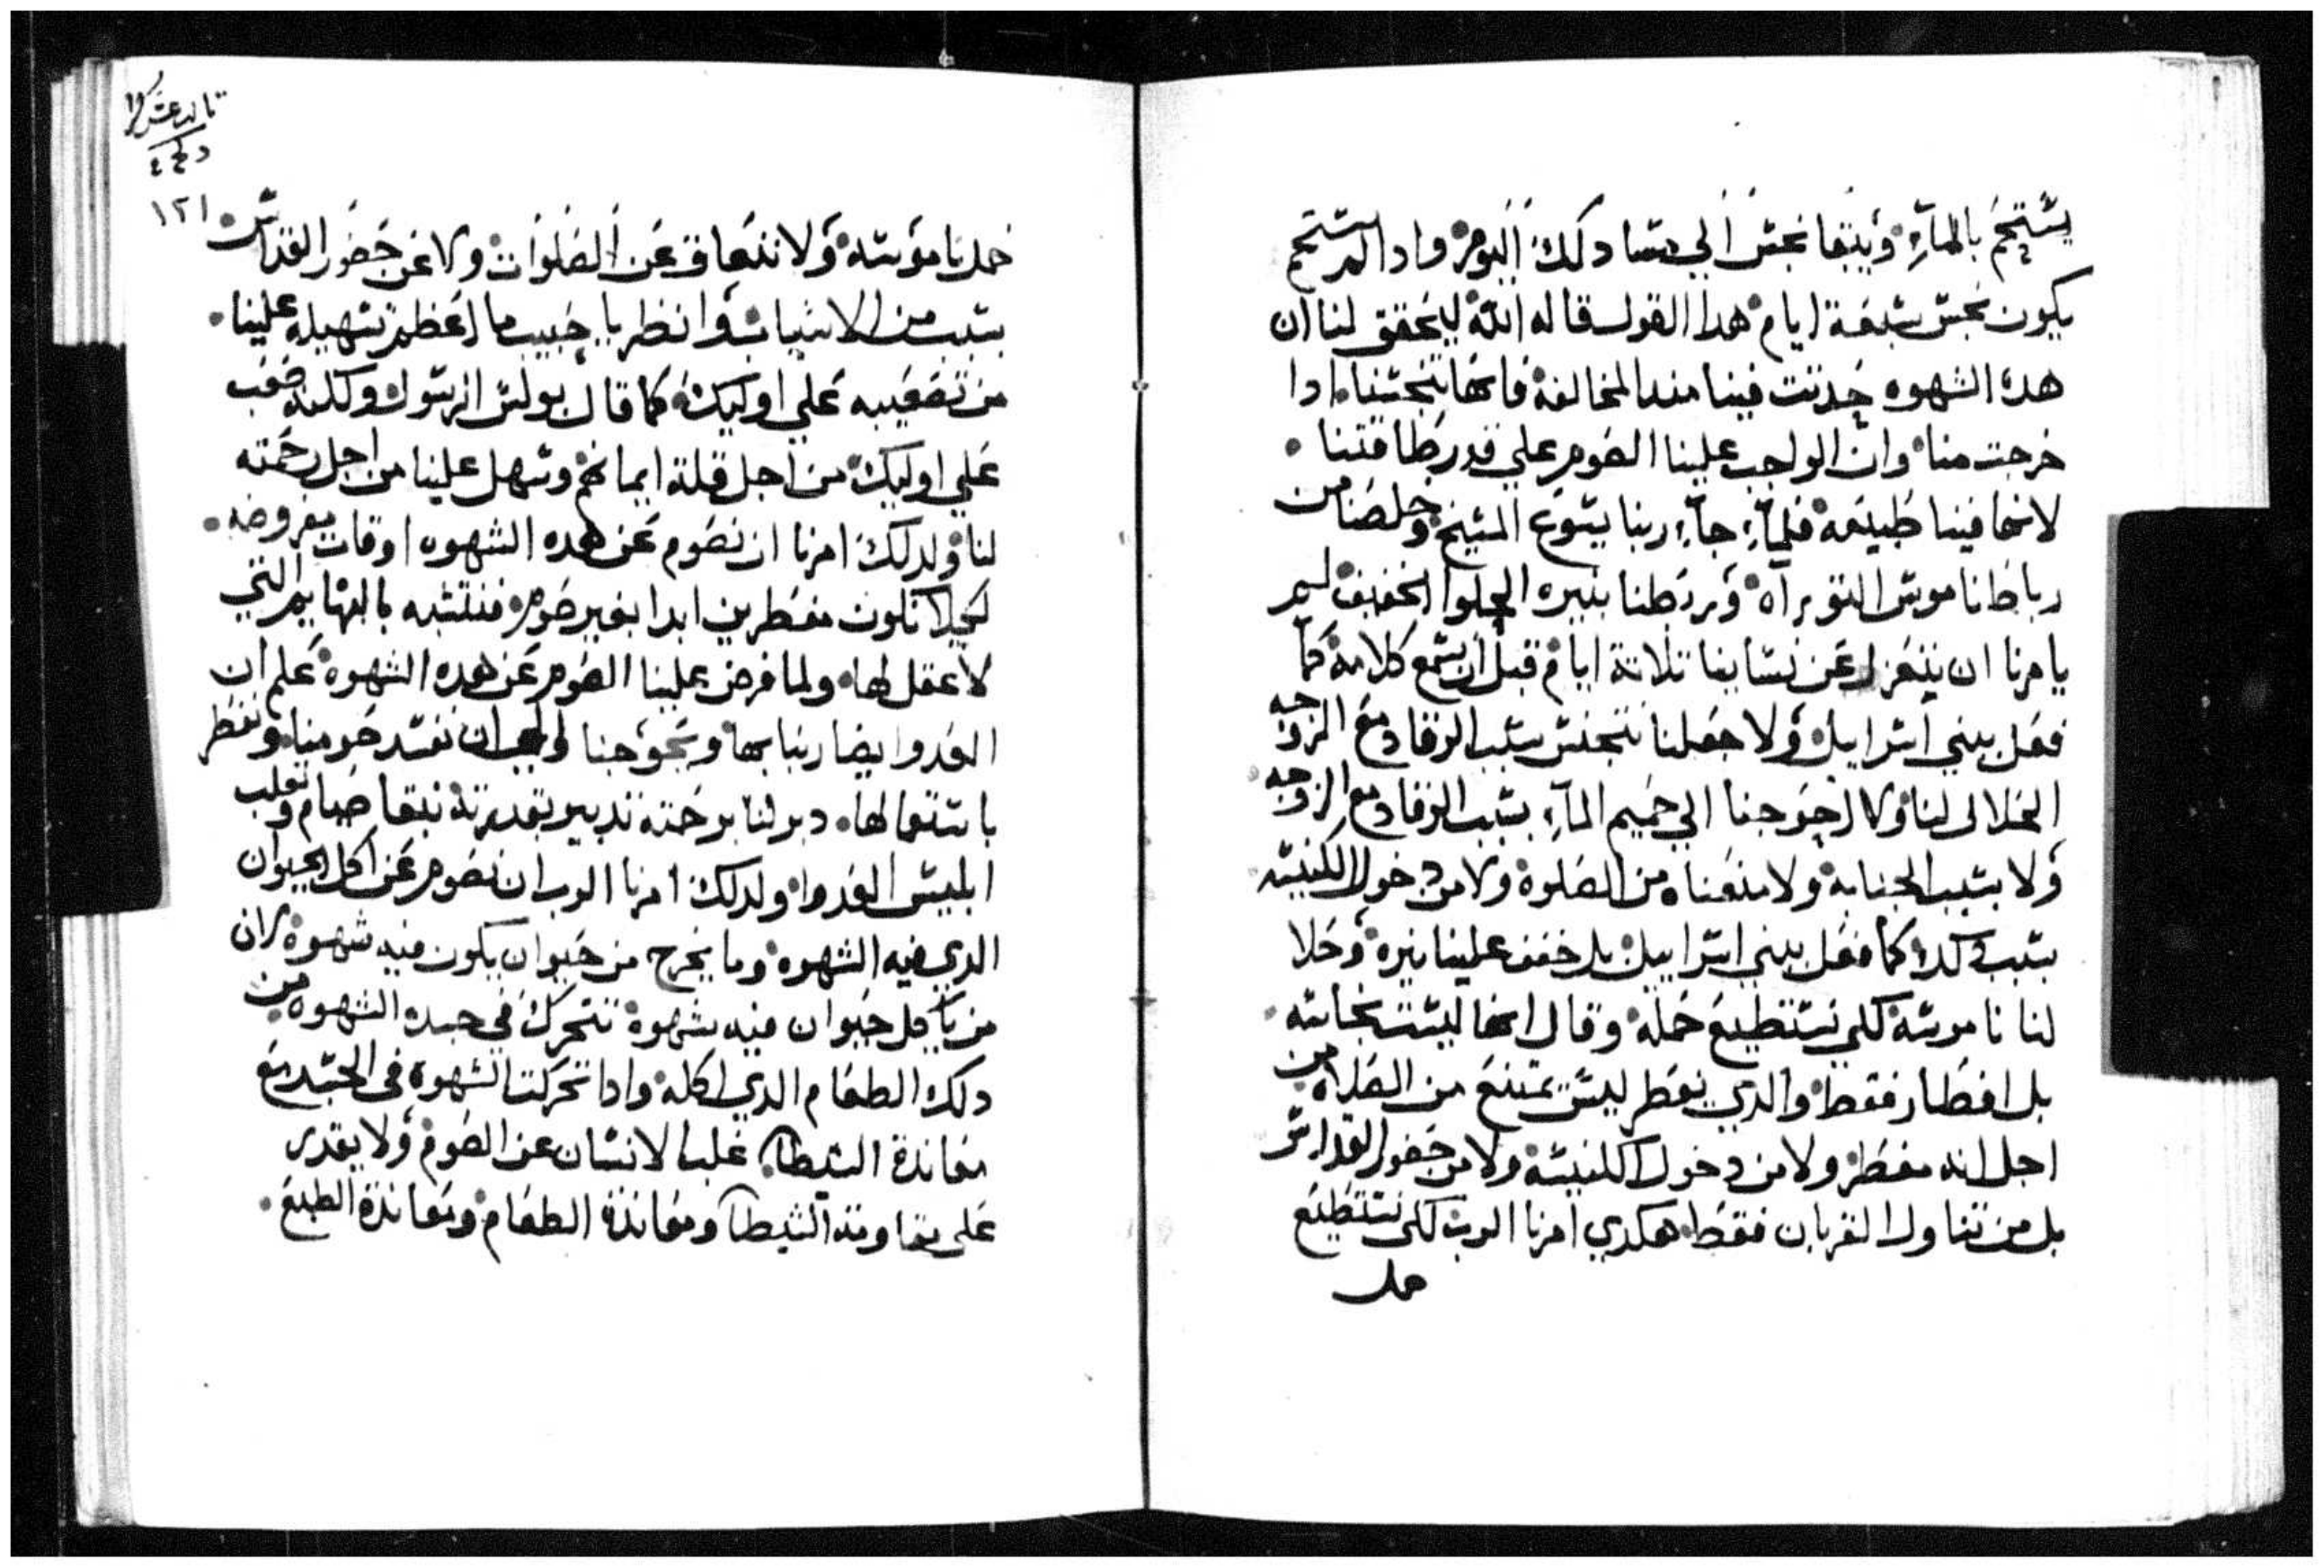 يستحم بالمآء وَيبقا نجس الي مسا دلك اليوم وادا لم يستحم
يكون نجس سبعة ايام هدا القول قاله الله ليحقق لنا ان
هده الشهوه حدتت فينا مند المخالفة فانها تنجسنا ادا
خرجت منا وان الواجب علينا الصوم علي قدر طاقتنا
لانها فينا طبيعة فلمآء جآء ربنا يسوع المسيح وخلصنا من
رباط ناموس التوراه وَربطنا بنيره الحلوا الخفيف لم
يامرنا ان ننعزل عن نساينا تلاتة ايام قبل ان نسمع كلامه كما
فعل ببني اسراييل وَلا جعلنا نتنجس بسبب الرقاد مع الزوجه
الحلال لنا ولا احوجنا الي حميم المآء بسبب الرقاد مع الزوجه
وَلا بسبب الجنابة ولا منعنا من الصلوة ولا من دخول الكنيسه
بسبب دلك كما فعل ببني اسراييل بل خفف علينا نيره وَحلا
لنا ناموسه لكي نستطيع حمله وقال انها ليست نجاسه
بل افطار فقط والدي يفطر ليس يمتنع من الصلاه من
اجل انه مفطر ولا من دخول الكنيسة ولا من حضور القداس
بل من تناول القربان فقط هكدي امرنا الرب لكي نستطيع
حمل
تالت عشر
١٢١
حمل ناموسه وَلا نتعاق عن الصلوات ولا عن حضور القداس
بسبب من الاسباب وانظر يا حبيب ما اعظم تسهيله علينا
من تصعيبه علي اوليك كما قال بولس الرسول ولكنه صعب
علي اوليك من اجل قلة ايمانهم وسهل علينا من اجل رحمته
لنا ولدلك امرنا ان نصوم عن هده الشهوه اوقات مفروضه
لكيلا نكون مفطرين ابدا بغير صوم فنتشبه بالبهايم التي
لا عقل لها ولما فرض علينا الصوم عن هده الشهوة علم ان
العدوا يضاربنا بها ويحوجنا الي ان نفسد صومنا ونفطر
باستعمالها دبر لنا برحمته تدبير بقدرته نبقا صيام ونغلب
ابليس العدوا ولدلك امرنا الرب ان نصوم عن اكل الحيوان
الدي فيه الشهوه وما يخرج من حيوان يكون فيه شهوة لان
من ياكل حيوان فيه شهوة تتحرك في جسده الشهوه من
دلك الطعام الدي اكله وادا تحركت الشهوة في الجسد مع
معاندة الشيطان غلب الانسان عن الصوم وَلا يقدر
علي مقاومة الشيطان ومعاندة الطعام ومعاندة الطبع